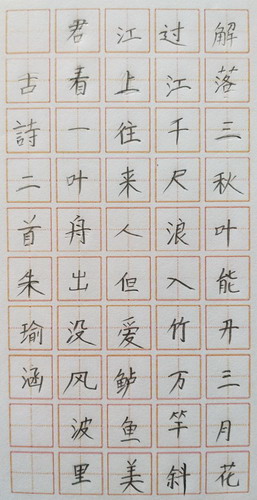 解落三秋叶能开三月花
过江千尺浪入竹万竿斜
江上往来人但爱鲈鱼美
君看一叶舟出没风波里
古詩二首朱瑜涵